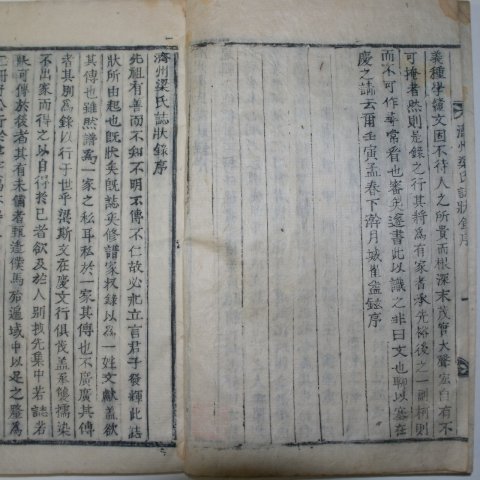 義種學績文固不待人之所貴而根深末茂實大聲宏自有不
可掩者然則是錄之行其將為有家者承光裕後之一副柯則
而不可作尋常看也審矣遂書此以識之非曰文也聊以塞在
慶之請云爾壬寅孟春下澣月城崔益鉉序
濟州梁氏誌狀錄序
濟州梁氏誌狀錄序
先祖有善而不知不明不傳不仁故必叱立言君子發揮此誌
狀所由起也既狀矣既誌矣修譜家收錄以為一姓文獻盖欲
其傳也雖然譜為一家之私耳私於一家其傳也不廣廣其傳
者其別為錄以行于世乎梁斯文在慶文行俱茂盖承雙擩染
不出家而得之以自得於己者飲及於人別拔先集中若誌若
狀可傳於後者其有未備者輒造僕馬殆遍域中以是之盛為